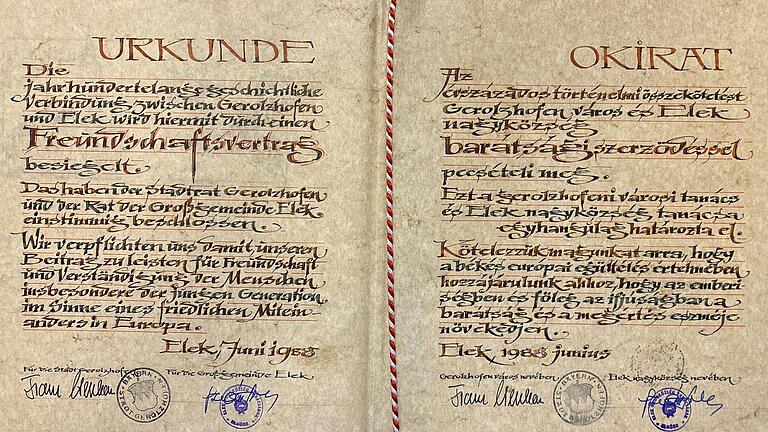 URKUNDE
Die
jahrhundertelange geschichtliche
Verbindung zwischen Gerolzhofen
und Elek wird hiermit durch einen
Freundschaftsvertrag
besiegelt.
Das haben der Stadtrat Gerolzhofen
und der Rat der Großgemeinde Elek
einstimmig beschlossen.
Wir verpflichten uns damit, unseren
Beitrag zu leisten für Freundschaft
und Verständigung der Menschen,
insbesondere der jungen Generation,
im Sinne eines friedlichen Mitein-
anders in Europa.
Elek, Juni 1988
Für die Stadt Gerolzhofen
Für die Großgemeinde Elek
BAYERN
STADT GEROLZHOFEN
OKIRAT
Az
évszázados történelmi összeköttetést
Gerolzhofen város és Elek
nagyközség
barátsági szerződéssel
pecsételi meg.
Ezt a gerolzhofeni városi tanács
és Elek nagyközség tanácsa
egyhangúlag határozta el.
Kötelezzük magunkat arra, hogy
a békés európai együttélés értelmében
hozzájárulunk ahhoz, hogy az emberi-
ségben és főleg az ifjúságban a
barátság és a megértés eszméje
növekedjen.
Elek, 1988 junius
Gerolzhofen város nevében
Elek nagyközség nevében
BAYERN